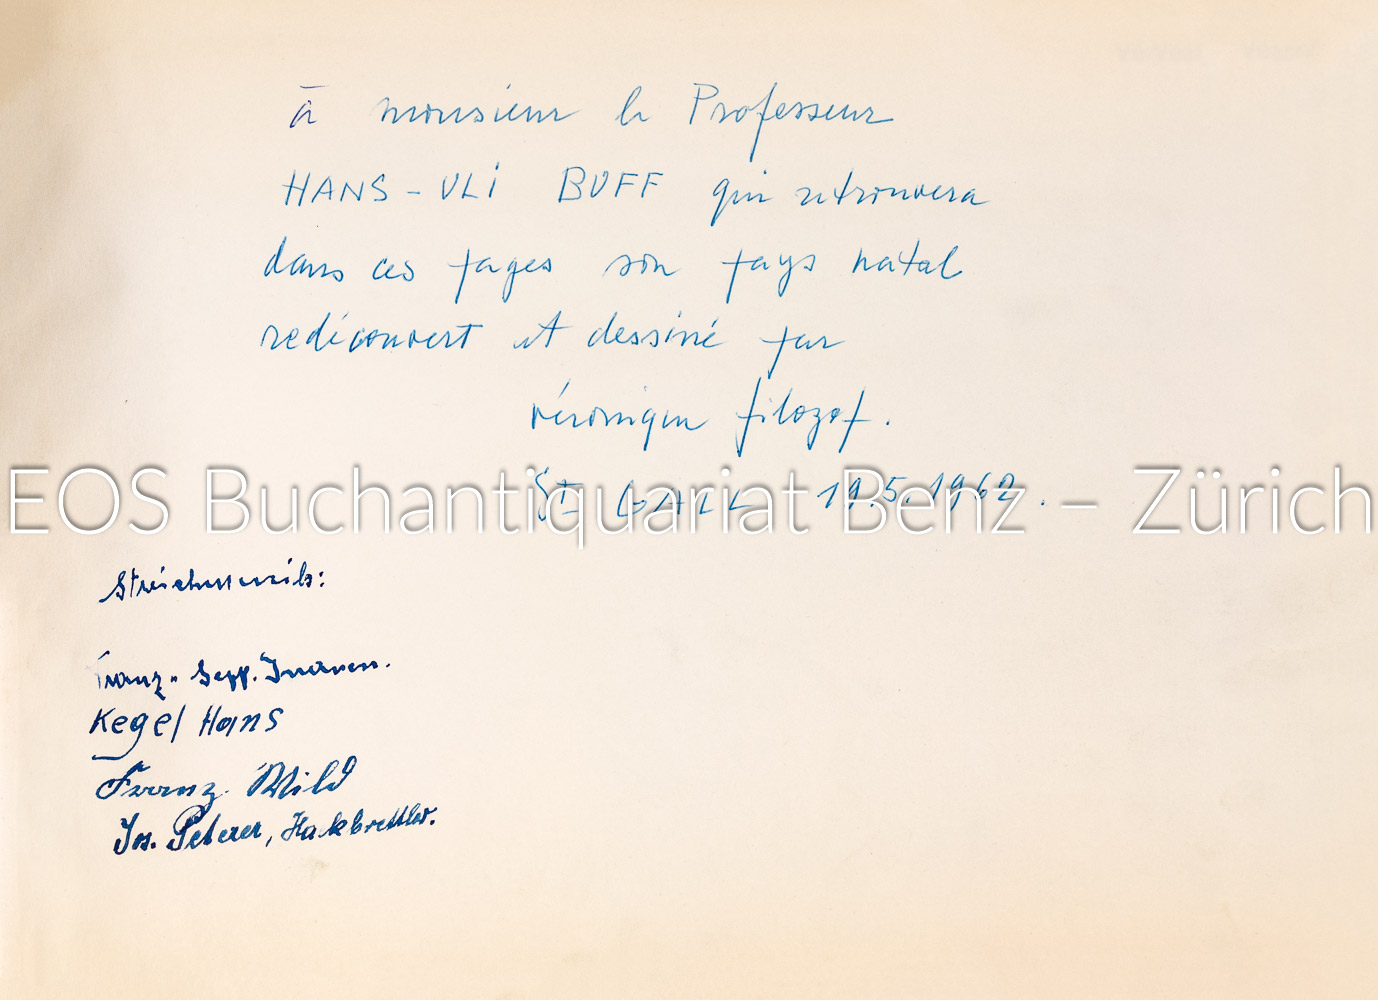 à monsieur le Professeur
HANS-ULI BUFF qui retrouvera
dans ces pages son pays natal
redécouvert et dessiné par
véronique filozof.
EOS Buchantiquariat Benz – Zürich
St GALL 19.5.1962.
Streichmusik:
Franz-Sepp. Inauen.
Kegel Hans
Franz Mild
Jos. Peterer, Hakbrettler.